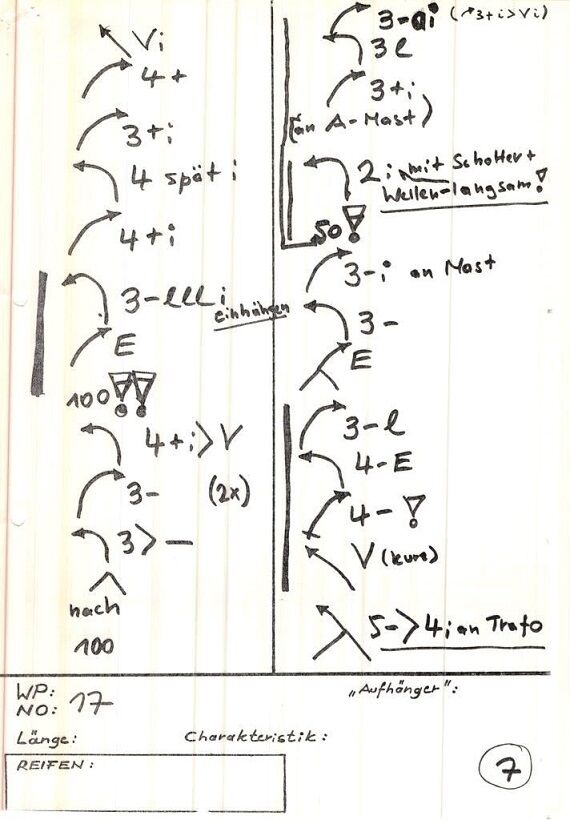 Vi
4+
3+i
4 spät i
4+i
3-lll i
einhängen
E
100 !!
4+i>V
3- (2x)
3>-
nach
100
3-ai (3+i>Vi)
3l
3+i
(an A-Mast)
2i mit Schotter+
Wellen-langsam!
50!
3-i an Mast
3-
E
3-l
4-E
4-!
V (kurz)
5->4i an Trafo
WP:
NO: 17
„Aufhänger":
Länge: Charakteristik:
REIFEN:
7